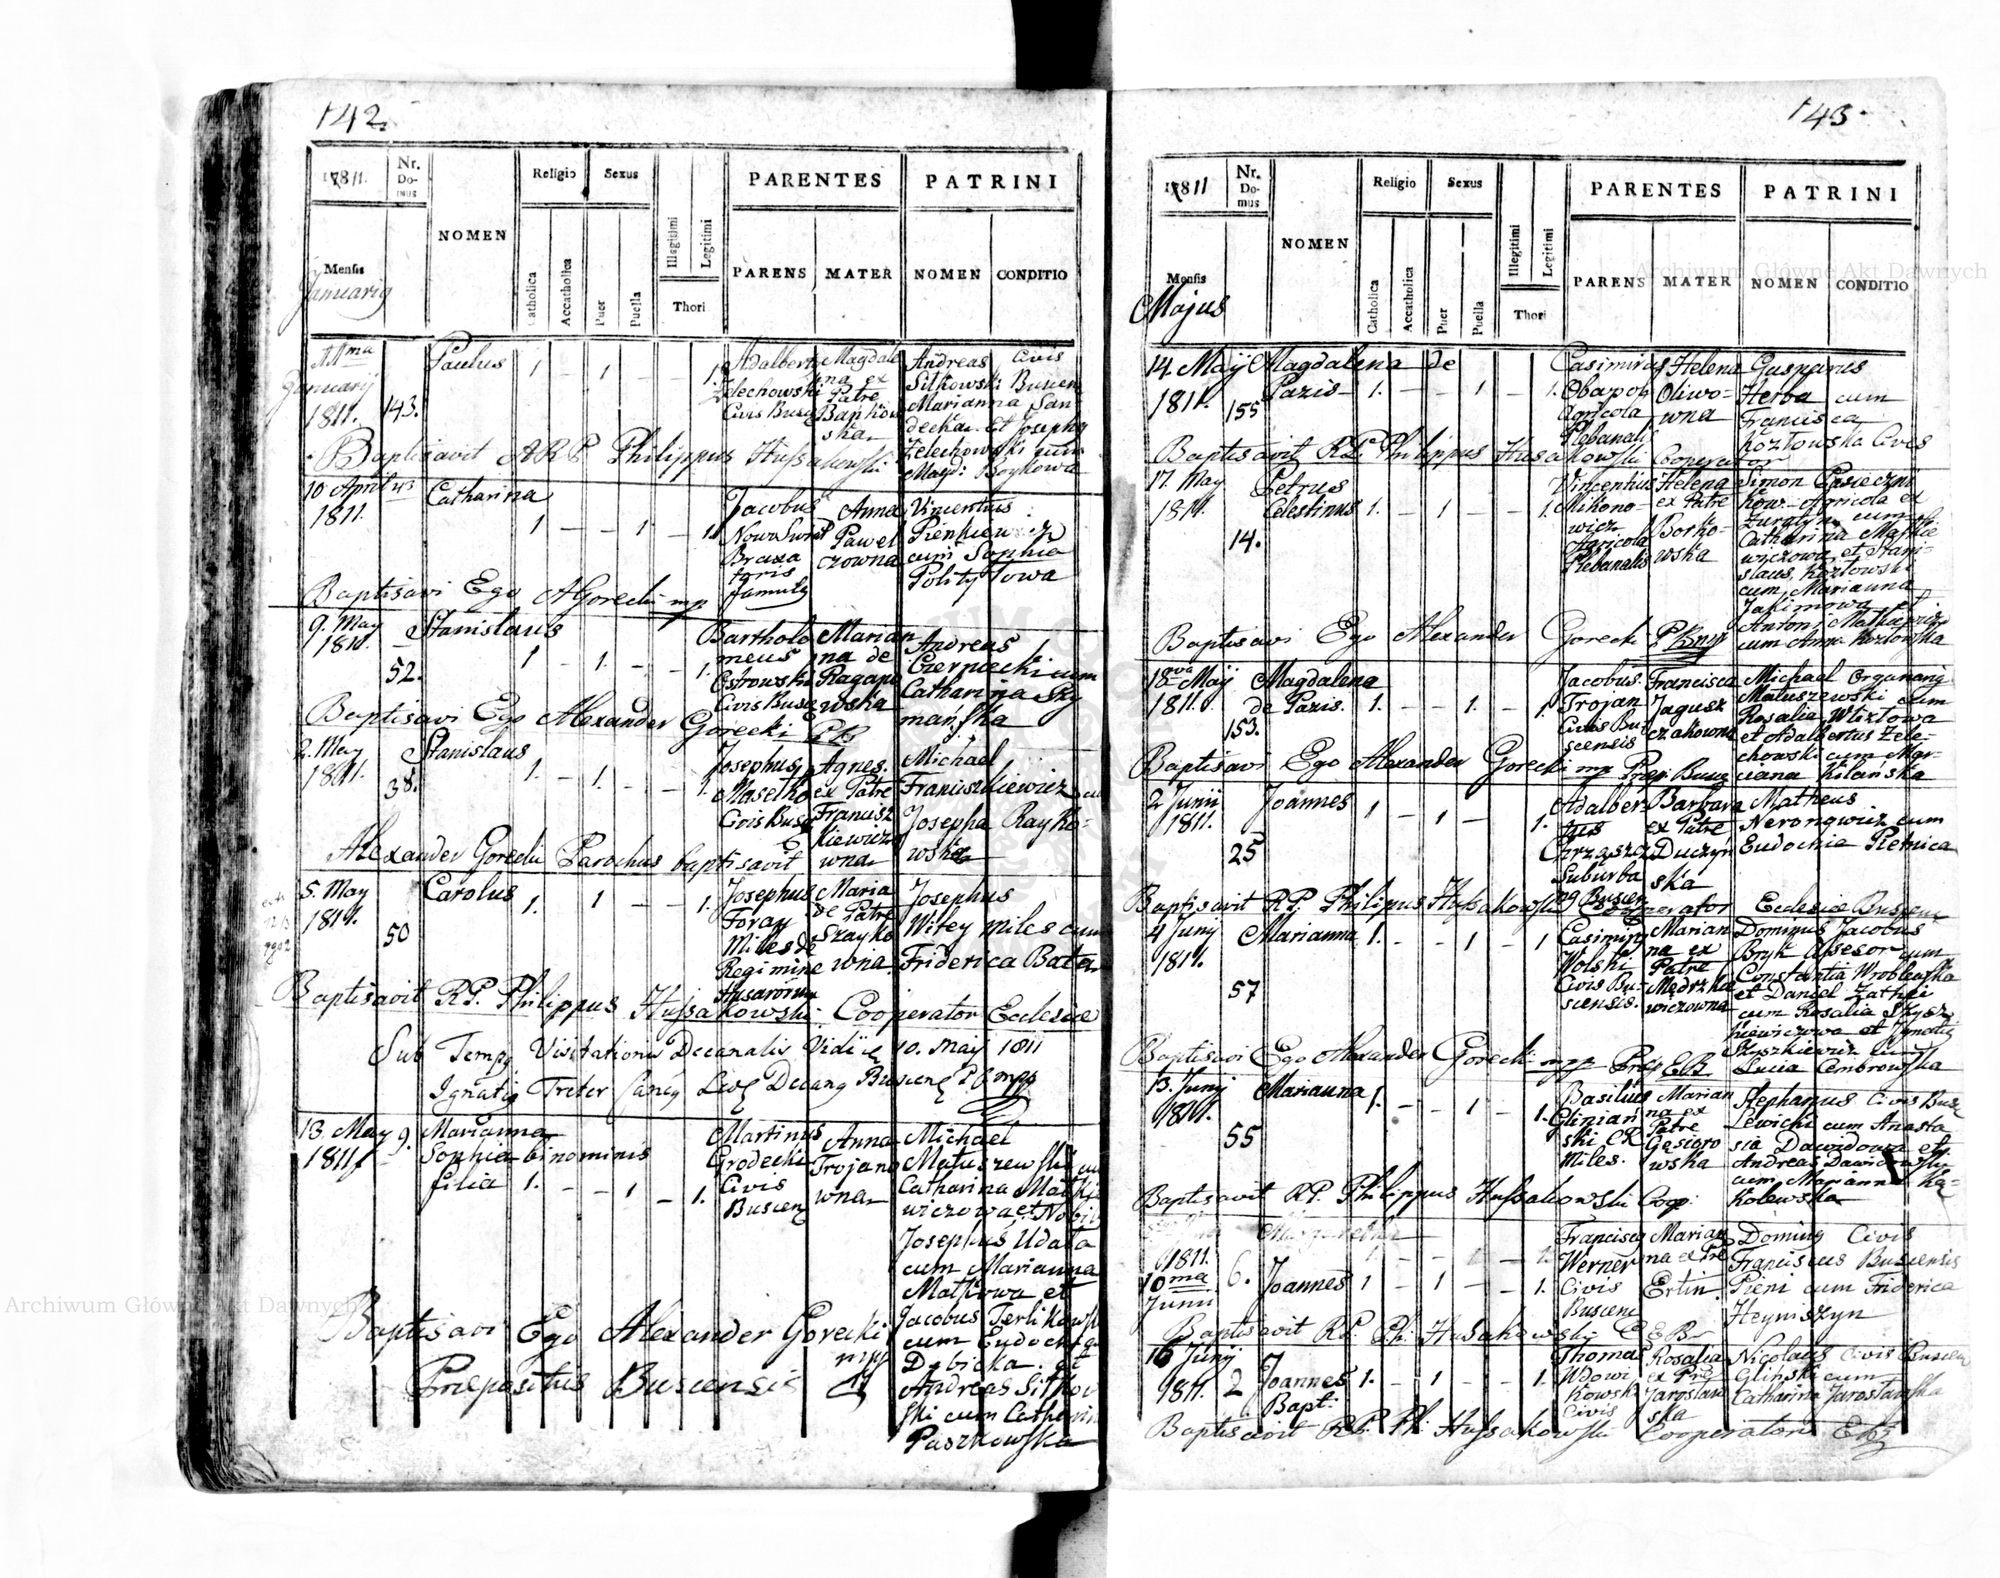 142.
1811.
Nr. Domus
NOMEN
Religio
Sexus
PARENTES
PATRINI
Mensis
Januarig
Catholica
Accatholica
Puer
Puella
Illegitimi
Legitimi
Thori
PARENS
MATER
NOMEN
CONDITIO
Januarij
1811.
143.
Paulus
1 - 1 - 1.
Zelechowski
Civis
Magdale
na ex
Patre
Bankow
ska
Andreas Civis
Sitkowski Buscen
Marianna San
decka Et Josephg
Zelechowski cum
Boykowa
Baptisavit A R P Philippus Hussakowski
10 Aprilis
1811.
Catharina
1 - - 1 - 1.
Jacobus
Braxa
toris
famulg
Anna
Pawel
czowna
Vincentius
Pienkiewicz
cum Sophia
Politylowa
Baptisavi Ego AGorecki mp
9. May
1811.
52.
Stanislaus
1 - 1. - - 1.
Bartholo
meus
Ostrowski
Civis Busc
Marian
na de
Ragapo
wska
Andreas
Czerniecki cum
Catharina Szy
manska
Baptisavi Ego Alexander Gorecki PB
2. May
1811.
38.
Stanislaus
1. - 1. - - 1.
Josephus
Maselko
Civis Busc
Agnes.
ex Patre
Francisz
kiewicz
wna
Michael
Franciszkiewicz cu
Josepha Rayko-
wska
Alexander Gorecki Parochus baptisavit
5. May
1811.
50
Carolus
1. 1 - - 1.
Josephus
Foray
Miles de
Regimine
Husarorum
Maria
de Patre
Szayko
wna
Josephus
Witey miles cum
Friderica Bata
Baptisavit RP. Philippus Hussakowski Cooperator Ecclesiae
Sub Tempg Visitationis Decanalis Vidi d 10. Maij 1811
Ignatig Treter Decang
13. May
1811
9.
Marianna
Sophia binominis
filia 1. - - 1 - 1.
Martinus
Grodecki
Civis
Buscen
Anna
Trojano
wna
Michael
Matuszewski cu
Catharina Matki
wiczowa et Nobil
Josephus Udala
cum Marianna
Matkowa et
Jacobus Terlikowsk
cum Eudochia
Dabicka. et
Andreas Sitkow
ski cum Catharin
Paszkowska
Baptisavi Ego Alexander Gorecki
mp
Praepositus Buscensis
143.
1811
Nr. Domus
NOMEN
Religio
Sexus
PARENTES
PATRINI
Mensis
Majus
Catholica
Accatholica
Puer
Puella
Illegitimi
Legitimi
Thori
PARENS
MATER
NOMEN
CONDITIO
14. Maij
1811.
155
Magdalena de
Pazis 1. - - 1 - 1.
Casimirus
Agricola
Plebanalis
Helena
Oliwo-
wna
Gasparus
Herba cum
Francisca
Kozlowska Civis
Baptisavit R.P. Philippus Husakowski Cooperator
17. May
1811.
14.
Petrus
Celestinus 1. - 1 - - 1.
Vincentius
Mikono-
wicz
Agricola
Plebanalis
Helena
ex Patre
Borko-
wska
Simon
Agricola ex
cum
Catharina Matkie
wiczowa et Stani-
slaus Kozlowski
cum Marianna
Jakimowa et
Anton
cum Anna Kozlowska
Baptisavi Ego Alexander Gorecki
18va Maij
1811.
153.
Magdalena
de Pazis. 1. - - 1. - 1.
Jacobus
Trojan
Civis Bu-
scensis
Francisca
Jagusz
czakowna
Michael Organarig
Matuszewski cum
Rosalia
et Adalbertus Zele-
chowski cum Mar-
ciana Kilanska
Baptisavi Ego Alexander Gorecki mp
2 Junii
1811.
25
Joannes
1 - 1 - 1.
Adalber
tus
Chrzaszcz
Suburba
ng Buscen
Barbara
ex Patre
Duczyn
ska
Matheus
Nerongwicz cum
Eudochia Retnica
Baptisavit RP. Philippus Hussakowski Cooperator Eclesiae Buscen
4 Junij
1811.
57
Marianna 1. - - 1 - 1
Casimirg
Wolski
Civis Bu-
scensis.
Marian
na ex
Patre
Medrzkie
wiczowna
Dominus Jacobus
Bryk Assesor cum
Constantia Wroblewska
et Daniel
cum Rosalia Szysz
kiewiczowa et Ignatig
Szyszkiewicz cum
Lucia Cembrowska
Baptisavi Ego Alexander Gorecki mpp Prep EB
13. Junij
1811.
55
Marianna 1. - - 1 - 1.
Basilius
Glinian
ski CR
Miles.
Marian
na ex
Patre
Gesioro
wska
Stephanus Civis Busc
Lewicki cum Anasta
sia Dawidowa et
Andreas Dawidowsky
cum Marianna
Kolewska
Baptisavit RP. Philippus Hussakowski Coop:
1811.
10ma
Junii
6.
Joannes 1 - 1 - - 1.
Franciscg
Werner
Civis
Buscens
Marian
na ex Pre
Ertin
Doming Civis
Franciscus Buscensis
Pieni cum Friderica
Heyniszyn
Baptisavit RP. Ph: Husakowski C E B
16 Junij
1811.
2
Joannes
Bapt:
1. - 1 - - 1.
Thomas
Wdowi
kowski
Civis
Rosalia
ex Pre
Jaroslaw
ska
Nicolaus Civis Buscen
Glinski cum
Catharina Jaroslawska
Baptisavit RP. Ph: Hussakowski Cooperator
Archiwum Główne Akt Dawnych
Archiwum Główne Akt Dawnych